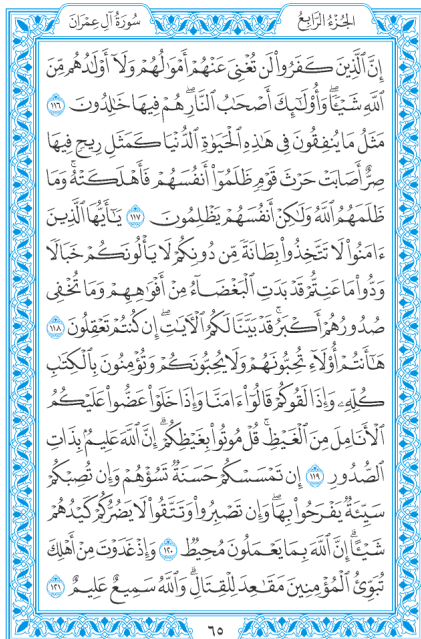 الجُزْءُ الرَّابِعُ سُورَةُ آلِ عِمْرَانَ
إِنَّ ٱلَّذِينَ كَفَرُواْ لَن تُغْنِىَ عَنْهُمْ أَمْوَٰلُهُمْ وَلَآ أَوْلَٰدُهُم مِّنَ
ٱللَّهِ شَيْـًٔا ۖ وَأُوْلَٰٓئِكَ أَصْحَٰبُ ٱلنَّارِ ۖ هُمْ فِيهَا خَٰلِدُونَ ١١٦
مَثَلُ مَا يُنفِقُونَ فِى هَٰذِهِ ٱلْحَيَوٰةِ ٱلدُّنْيَا كَمَثَلِ رِيحٍ فِيهَا
صِرٌّ أَصَابَتْ حَرْثَ قَوْمٍ ظَلَمُوٓاْ أَنفُسَهُمْ فَأَهْلَكَتْهُ ۚ وَمَا
ظَلَمَهُمُ ٱللَّهُ وَلَٰكِنْ أَنفُسَهُمْ يَظْلِمُونَ ١١٧ يَٰٓأَيُّهَا ٱلَّذِينَ
ءَامَنُواْ لَا تَتَّخِذُواْ بِطَانَةً مِّن دُونِكُمْ لَا يَأْلُونَكُمْ خَبَالًا
وَدُّواْ مَا عَنِتُّمْ قَدْ بَدَتِ ٱلْبَغْضَآءُ مِنْ أَفْوَٰهِهِمْ وَمَا تُخْفِى
صُدُورُهُمْ أَكْبَرُ ۚ قَدْ بَيَّنَّا لَكُمُ ٱلْأٓيَٰتِ ۖ إِن كُنتُمْ تَعْقِلُونَ ١١٨
هَٰٓأَنتُمْ أُوْلَآءِ تُحِبُّونَهُمْ وَلَا يُحِبُّونَكُمْ وَتُؤْمِنُونَ بِٱلْكِتَٰبِ
كُلِّهِۦ وَإِذَا لَقُوكُمْ قَالُوٓاْ ءَامَنَّا وَإِذَا خَلَوْاْ عَضُّواْ عَلَيْكُمُ
ٱلْأَنَامِلَ مِنَ ٱلْغَيْظِ ۚ قُلْ مُوتُواْ بِغَيْظِكُمْ ۗ إِنَّ ٱللَّهَ عَلِيمٌۢ بِذَاتِ
ٱلصُّدُورِ ١١٩ إِن تَمْسَسْكُمْ حَسَنَةٌ تَسُؤْهُمْ وَإِن تُصِبْكُمْ
سَيِّئَةٌ يَفْرَحُواْ بِهَا ۖ وَإِن تَصْبِرُواْ وَتَتَّقُواْ لَا يَضُرُّكُمْ كَيْدُهُمْ
شَيْـًٔا ۗ إِنَّ ٱللَّهَ بِمَا يَعْمَلُونَ مُحِيطٌ ١٢٠ وَإِذْ غَدَوْتَ مِنْ أَهْلِكَ
تُبَوِّئُ ٱلْمُؤْمِنِينَ مَقَٰعِدَ لِلْقِتَالِ ۗ وَٱللَّهُ سَمِيعٌ عَلِيمٌ ١٢١
٦٥